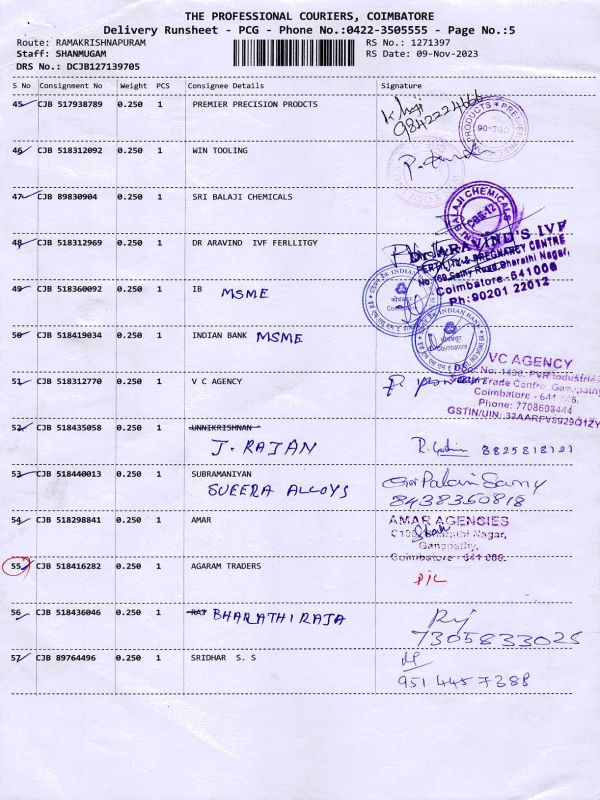 THE PROFESSIONAL COURIERS, COIMBATORE
Delivery Runsheet - PCG - Phone No.:0422-3505555 - Page No.:5
Route: RAMAKRISHNAPURAM RS No.: 1271397
Staff: SHANMUGAM RS Date: 09-Nov-2023
DRS No.: DCJB127139705
S No Consignment No Weight PCS Consignee Details Signature
45 CJB 517938789 0.250 1 PREMIER PRECISION PRODCTS
9842224666
46 CJB 518312092 0.250 1 WIN TOOLING
47 CJB 89830904 0.250 1 SRI BALAJI CHEMICALS
BALAJI CHEMICALS
CBE-12
48 CJB 518312969 0.250 1 DR ARAVIND IVF FERLLITGY
Dr. ARAVIND'S IVF
FERTILITY & PREGNANCY CENTRE
No.169 Sathy Road, Bharathi Nagar,
Coimbatore - 641006
Ph: 90201 22012
49 CJB 518360092 0.250 1 IB
MSME
INDIAN BANK
50 CJB 518419034 0.250 1 INDIAN BANK MSME
INDIAN BANK
Coimbatore
51 CJB 518312770 0.250 1 V C AGENCY
VC AGENCY
Coimbatore - 641
Phone: 7708603444
GSTIN/UIN: 33AARFV8929Q1ZY
52 CJB 518435058 0.250 1 UNNIKRISHNAN
J. RAJAN
8825818121
53 CJB 518440013 0.250 1 SUBRAMANIYAN
SUEERA ALLOYS
Palani Samy
8438350818
54 CJB 518298841 0.250 1 AMAR
AMAR AGENCIES
Bharathi Nagar,
Ganapathy,
Coimbatore - 641 006.
55 CJB 518416282 0.250 1 AGARAM TRADERS
56 CJB 518436046 0.250 1 RAJ BHARATHIRAJA
7305833025
57 CJB 89764496 0.250 1 SRIDHAR S. S
951 445 7388